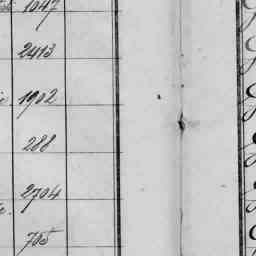 1047
2413
1902
288
2704
705